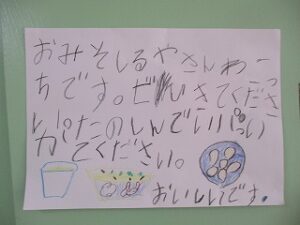 おみそしるやさんわこっ
ちです。ぜひきてくださ
い。たのしんでいっぱい
てください。
おいしいです。